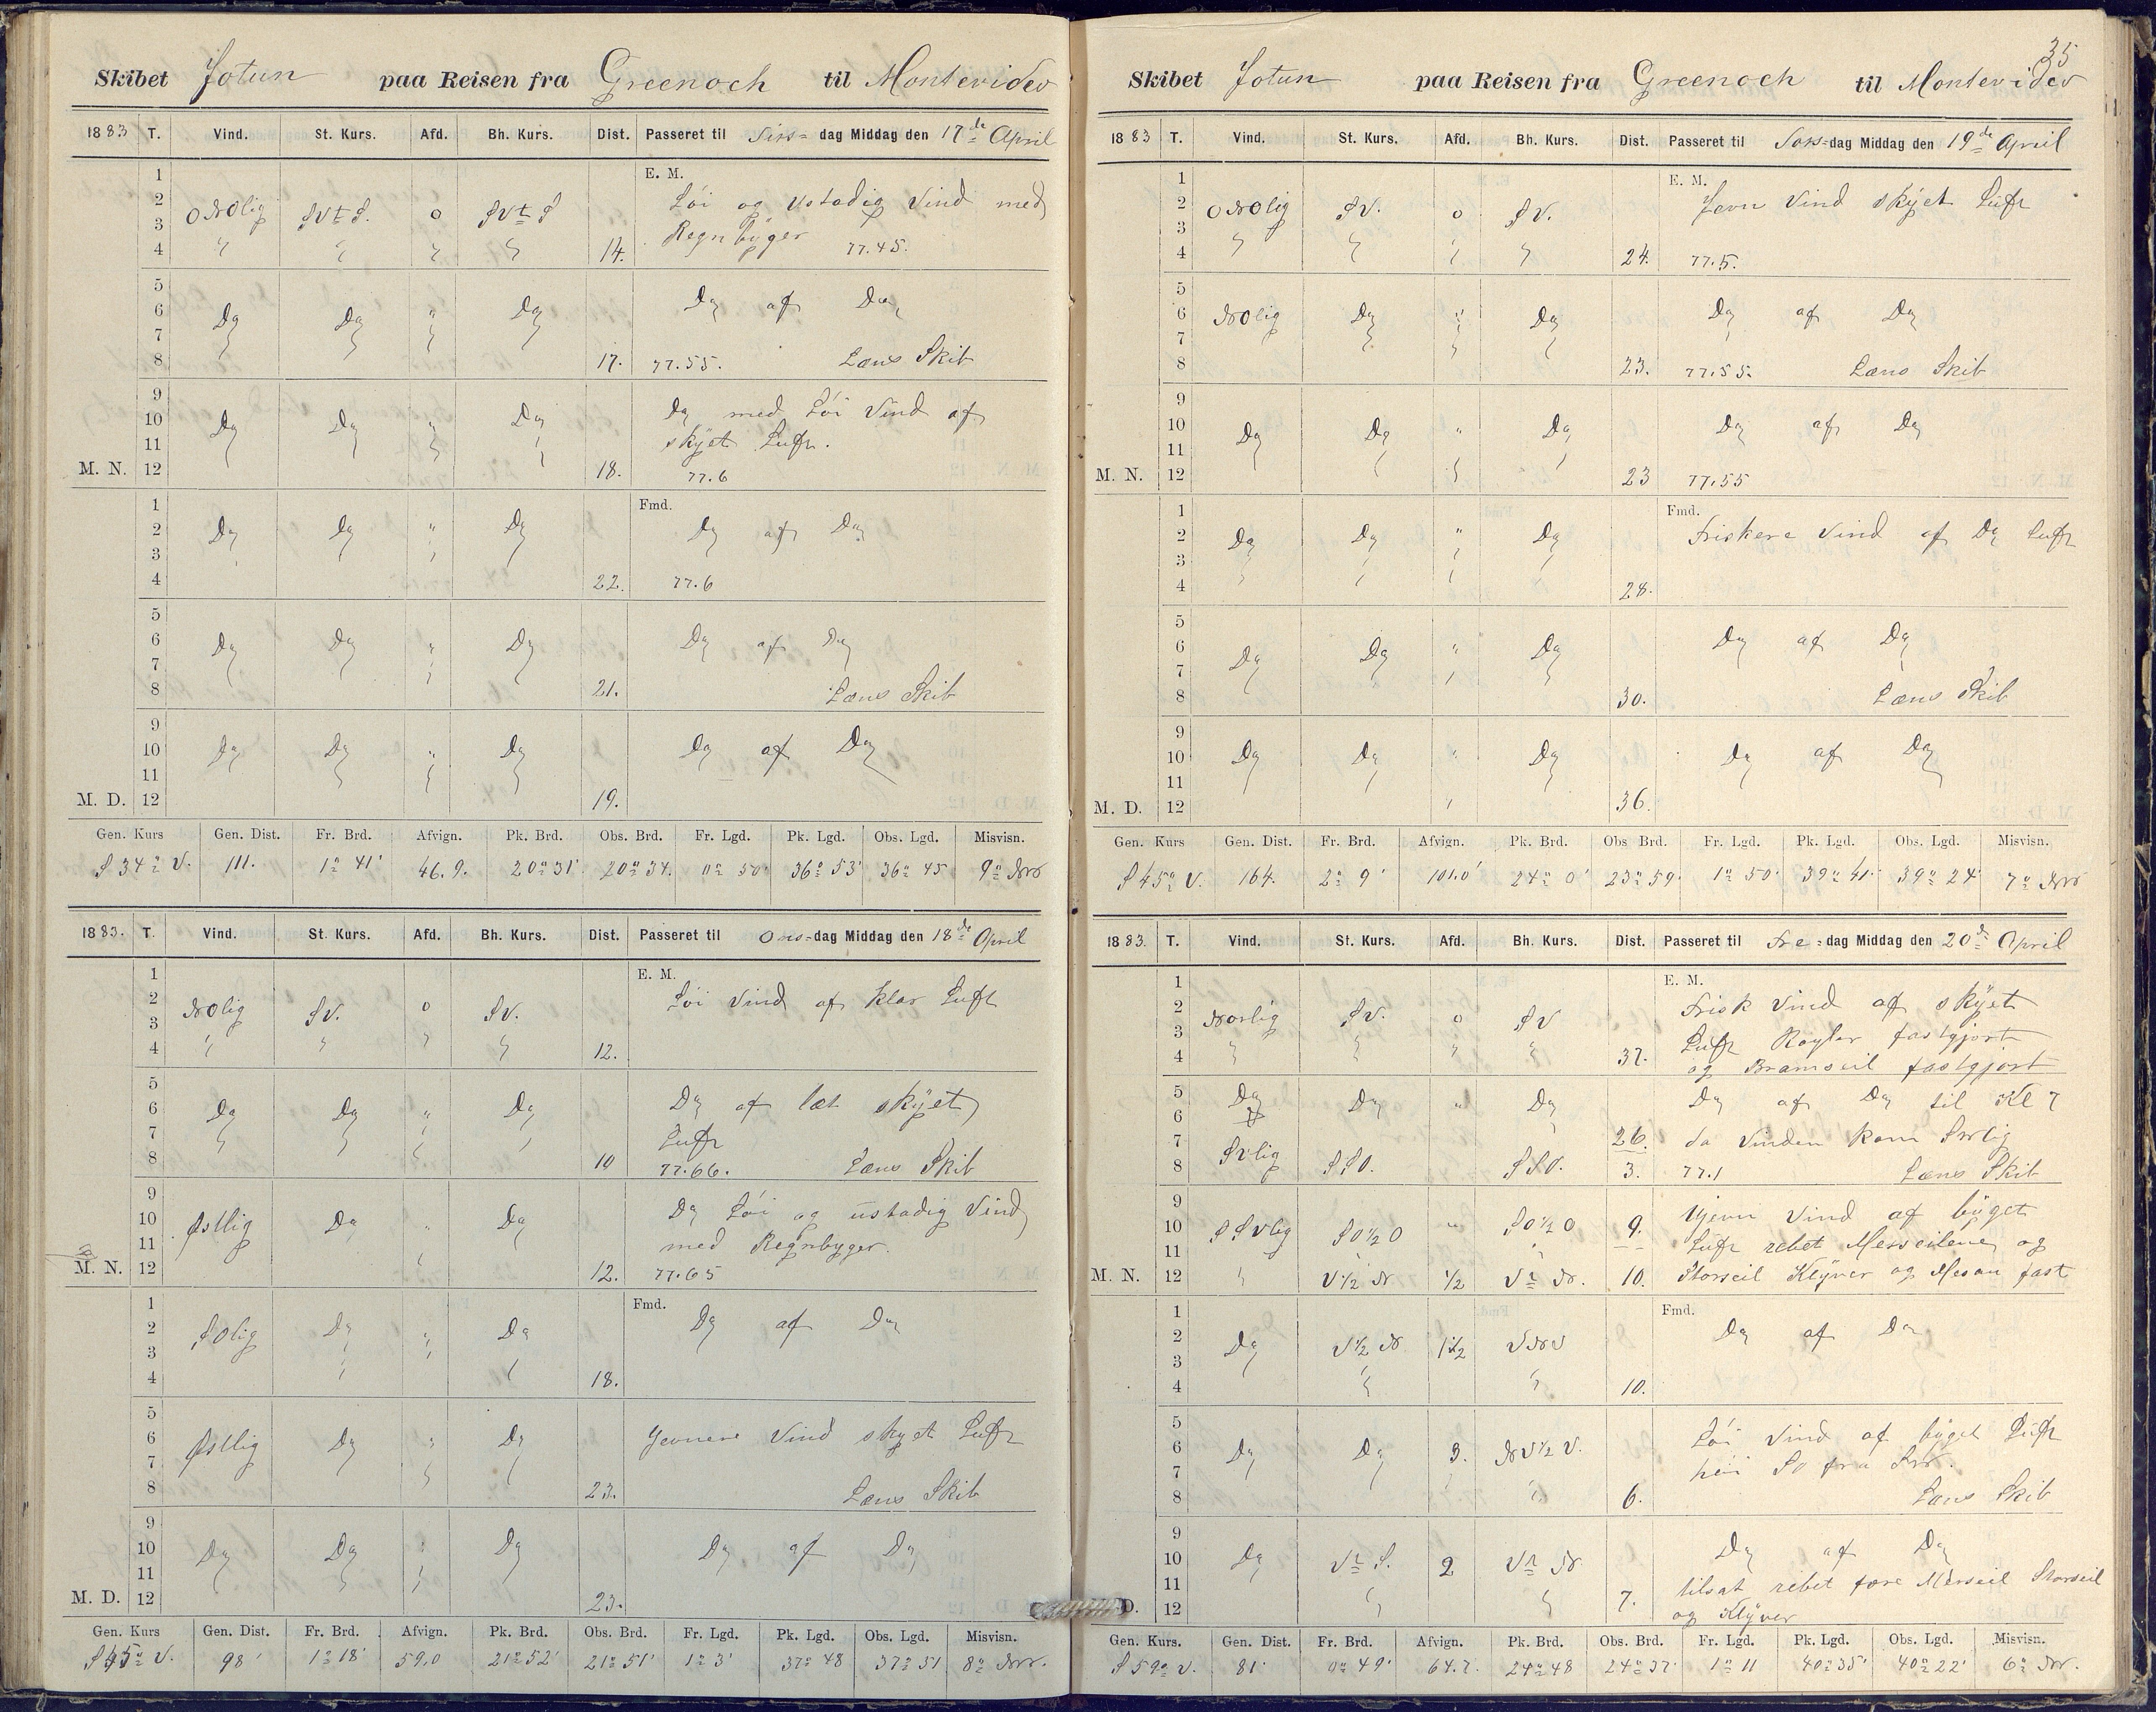 Skibet Jotun paa Reisen fra Greenoch til Montevideo
1883 T. Vind. St. Kurs. Afd. Bh. Kurs. Dist. Passeret til Tirs-dag Middag den 17de April
E. M.
1
2 ONOlig SVtS. 0 SVtS Löi og ustadig Vind med
3 Regnbyger 77.45.
4 " " " " 14.
5
6 Do Do " Do Do af Do
7
8 17. 77.55. Læns Skib
9
10 Do Do " Do Do med Löi Vind af
11 skÿet Luft.
M. N. 12 18. 77.6
Fmd.
1
2 Do Do " Do Do af Do
3
4 22. 77.6
5
6 Do Do " Do Do af Do
7
8 21. Læns Skib
9
10 Do Do " Do Do af Do
11
M. D. 12 19.
Gen. Kurs Gen. Dist. Fr. Brd. Afvign. Pk. Brd. Obs. Brd. Fr. Lgd. Pk. Lgd. Obs. Lgd. Misvisn.
S 34° V. 111. 1° 41' 46.9. 20° 31' 20° 34. 0° 50' 36° 53' 36° 45 9° NV
1883. T. Vind. St. Kurs. Afd. Bh. Kurs. Dist. Passeret til Ons-dag Middag den 18de April
E. M.
1
2 NOlig SV. 0 SV. Löi Vind af klar Luft
3
4 " " " " 12.
5
6 Do Do " Do Do af let skÿet
7 Luft
8 10 77.66. Læns Skib
9
10 Østlig Do " Do Do Löi og ustadig Vind
11 med Regnbyger.
M. N. 12 12. 77.65
Fmd.
1
2 SOlig Do " Do Do af Do
3
4 18.
5
6 Østlig Do " Do Jevnere Vind skyet Luft
7
8 23. Læns Skib
9
10 Do Do " Do Do af Do
11
M. D. 12 23.
Gen. Kurs Gen. Dist. Fr. Brd. Afvign. Pk. Brd. Obs. Brd. Fr. Lgd. Pk. Lgd. Obs. Lgd. Misvisn.
S 45° V. 98' 1° 18' 59.0 21° 52' 21° 51' 1° 3' 37° 48 37° 51 8° NV.
35
Skibet Jotun paa Reisen fra Greenoch til Montevideo
1883 T. Vind. St. Kurs. Afd. Bh. Kurs. Dist. Passeret til Tors-dag Middag den 19de April
E. M.
1
2 ONOlig SV. 0 SV. Jevn Vind skÿet Luft
3
4 " " " " 24. 77.5.
5
6 NOlig Do " Do Do af Do
7
8 23. 77.55. Læns Skib
9
10 Do Do " Do Do af Do
11
M. N. 12 23 77.55
Fmd.
1
2 Do Do " Do Friskere Vind af Do Luft
3
4 28.
5
6 Do Do " Do Do af Do
7
8 30. Læns Skib
9
10 Do Do " Do Do af Do
11
M. D. 12 36.
Gen. Kurs Gen. Dist. Fr. Brd. Afvign. Pk. Brd. Obs Brd. Fr. Lgd. Pk. Lgd. Obs. Lgd. Misvisn.
S 45° V. 164. 2° 9' 101.0' 24° 0' 23° 59' 1° 50' 39° 41' 39° 24' 7° NV
1883. T. Vind. St. Kurs. Afd. Bh. Kurs. Dist. Passeret til Fre-dag Middag den 20de April
E. M.
1
2 Norlig SV. 0 SV Frisk Vind af skÿet
3 Luft Röyler fastgjort
4 " " " " 37. og Bramseil fastgjort
5 Do Do " Do Do af Do til Kl 7
6 26. da Vinden kom SVlig
7 SVlig SSO. SSO. 3. 77.1 Læns Skib
8
9
10 SSVlig SO½O " SO½O 9. Ujevn Vind af bÿget
11 Luft rebet Merseilene og
M. N. 12 " V½N ½ VtN. 10. Storseil Klÿver og Mesan fast
Fmd.
1
2 Do V½N 1½ VNV Do af Do
3
4 " " 10.
5
6 Do Do 3. NV½V. Löi Vind af bÿget Luft
7 höi Sö fra SV.
8 6. Læns Skib
9
10 Do VtS. 2 VtN Do af Do
11 tilsat rebet fore Merseil Storseil
D. 12 7. og Klÿver
Gen. Kurs. Gen. Dist. Fr. Brd. Afvign. Pk. Brd. Obs. Brd. Fr. Lgd. Pk. Lgd. Obs. Lgd. Misvisn.
S 59° V. 81' 0° 49' 64.7. 24° 48 24° 37' 1° 11 40° 35' 40° 22' 6° NV.